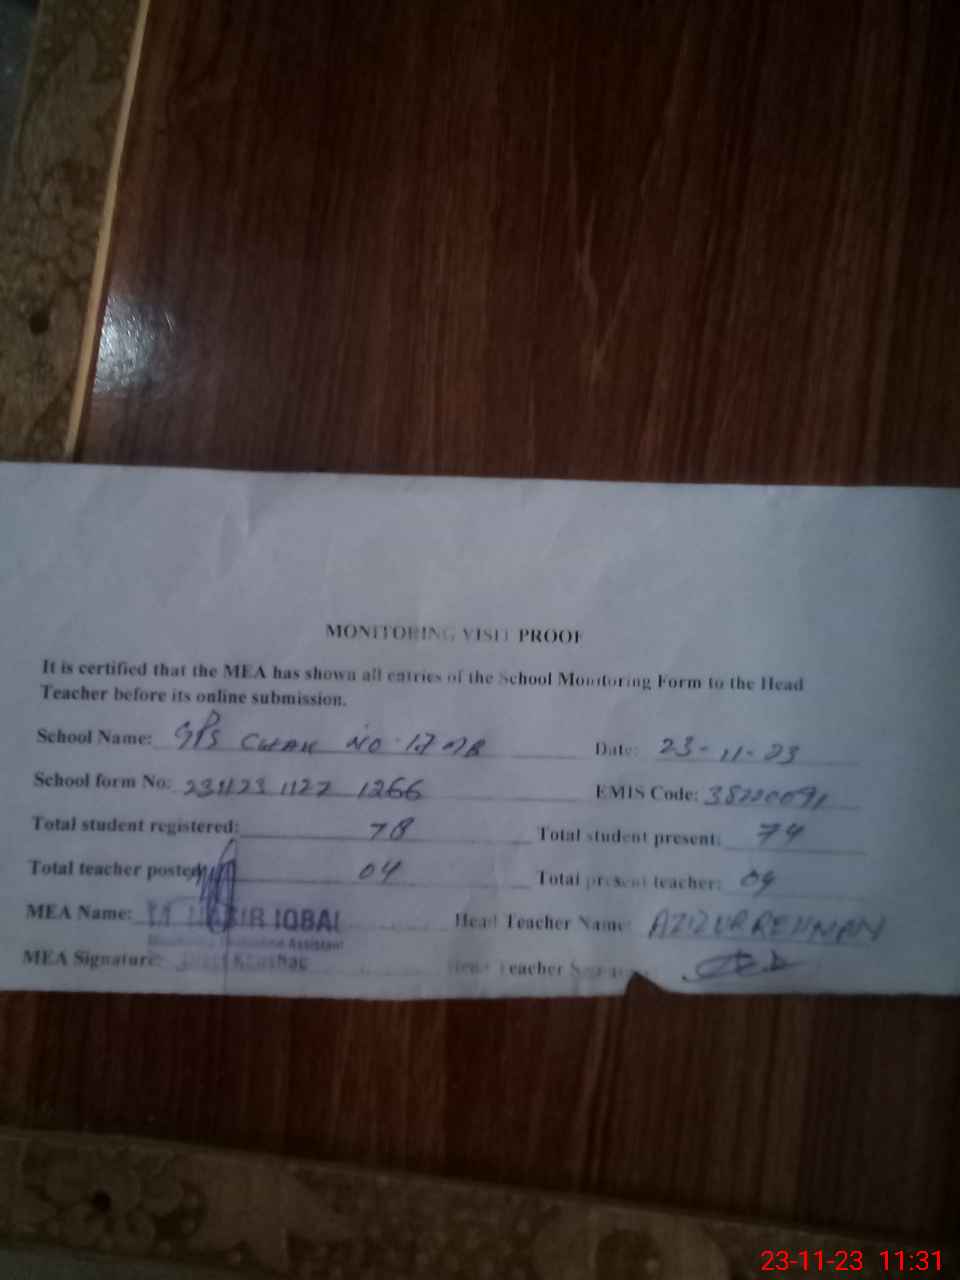 MONITORING VISIT PROOF
It is certified that the MEA has shown all entries of the School Monitoring Form to the Head
Teacher before its online submission.
School Name: GPS CHAK NO. Date: 23-11-23
School form No: 231123 1127 1266 EMIS Code:
Total student registered: 78 Total student present: 74
Total teacher posted: 04 Total present teacher: 04
MEA Name: IQBAL Head Teacher Name: AZIZUR REHMAN
Assistant
MEA Signature: Head Teacher
23-11-23 11:31